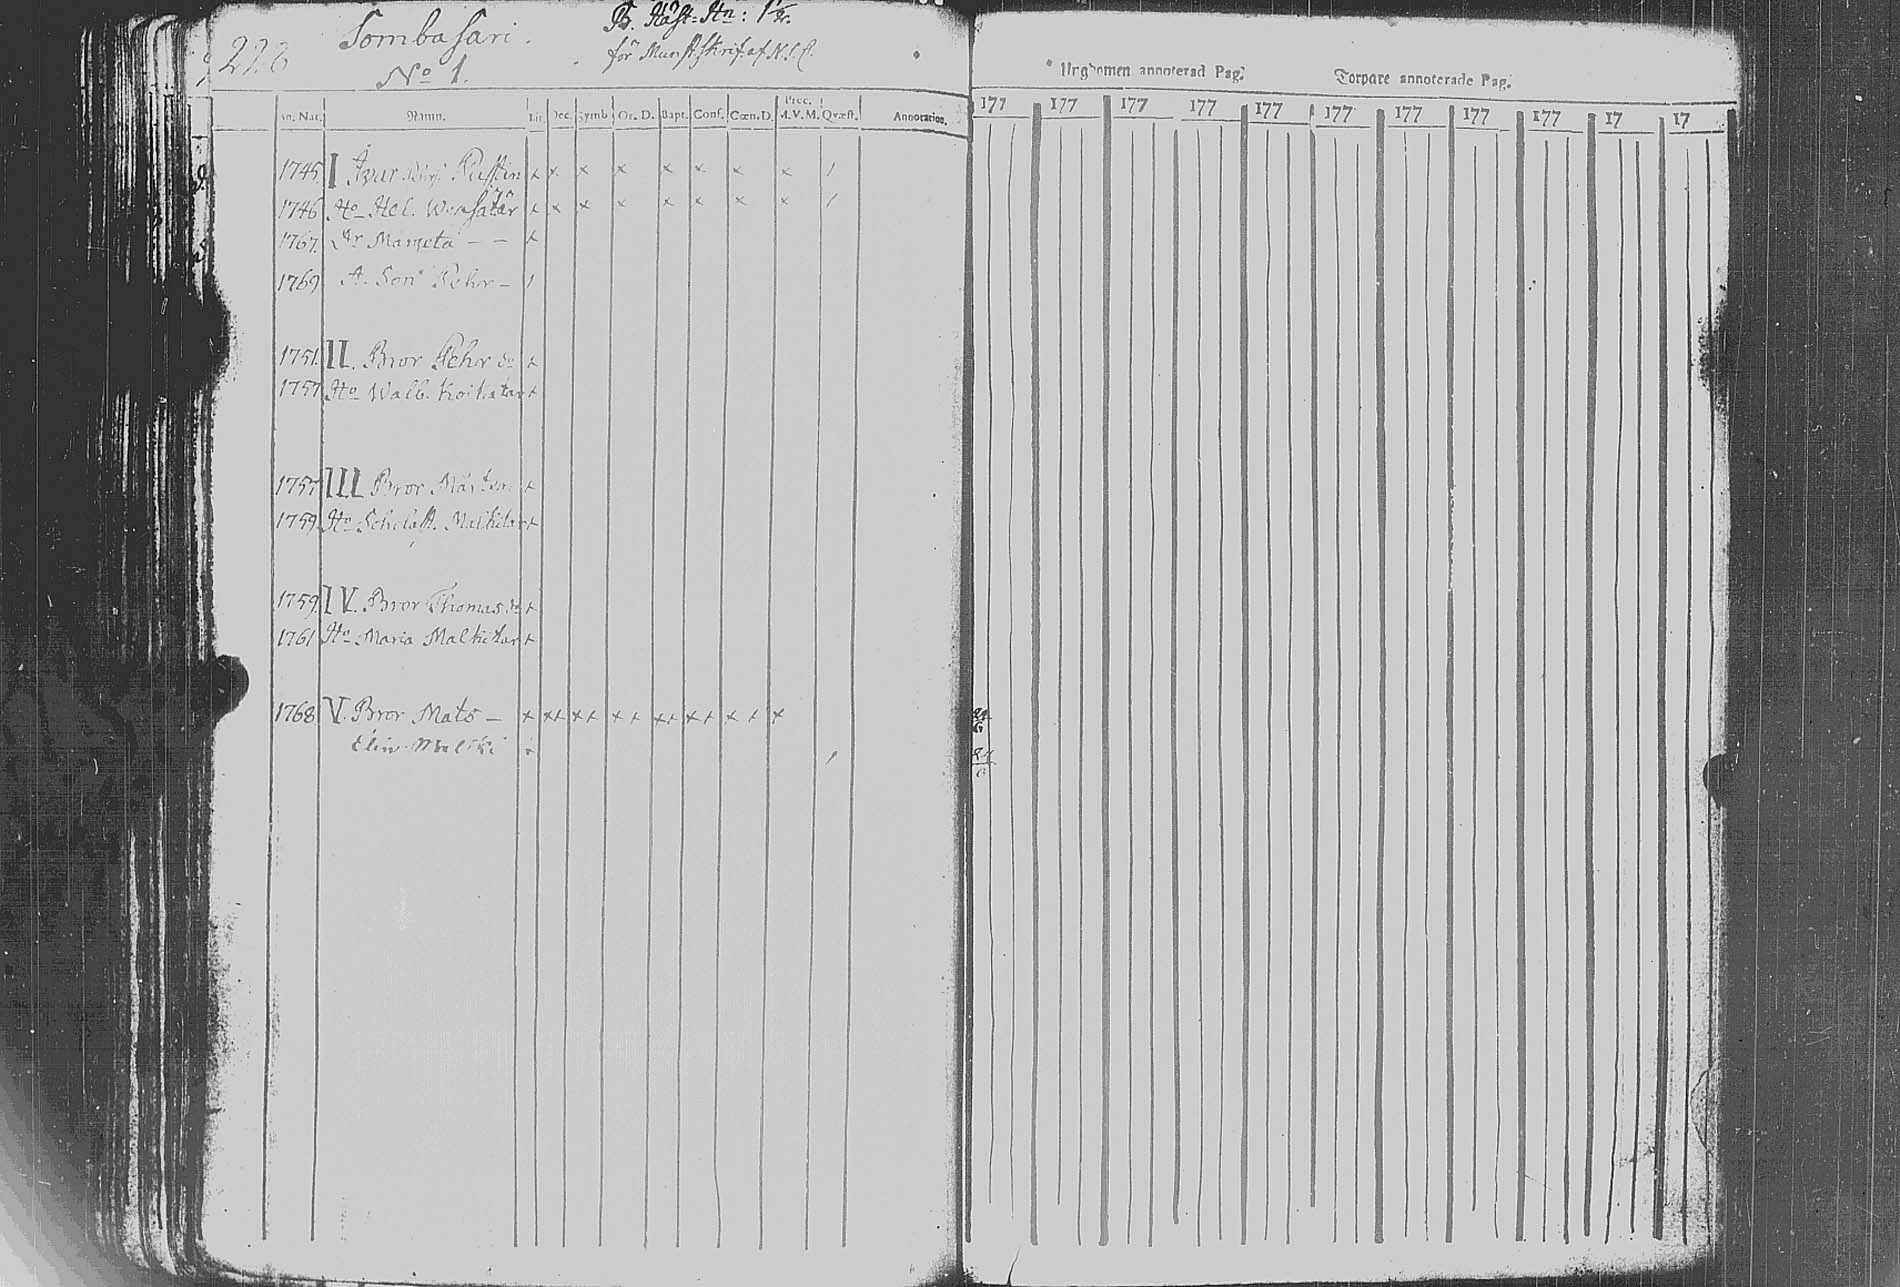 226 Sombasari. B. Häst. Hn: 1 1/2 r.
No 1. för Munst. skrif. af N. S. C.
An. Nat. Namn. Lit. Dec. Symb. Or. D. Bapt. Conf. Cœn. D. Prec. M. V. M. Quæst. Annotation.
1745. I Pustin x x x x x x x x /
1746 Ho Hel. x x x x x x x x /
1767. Margeta - - x
1769 A. Son Pehr - /
1751. II. Bror Pehr do x
1757 Ho Walb. Koikatar x
1757 III Bror Mårten x
1759. Ho Scholast. Malkitar x
1759. IV. Bror Thomas do x
1761 Ho Maria Malkitar x
1768 V. Bror Mats - x xx xx xx xx xx xx x
Elin Malki
Ungdomen annoterad Pag. Torpare annoterade Pag.
177 177 177 177 177 177 177 177 177 17 17